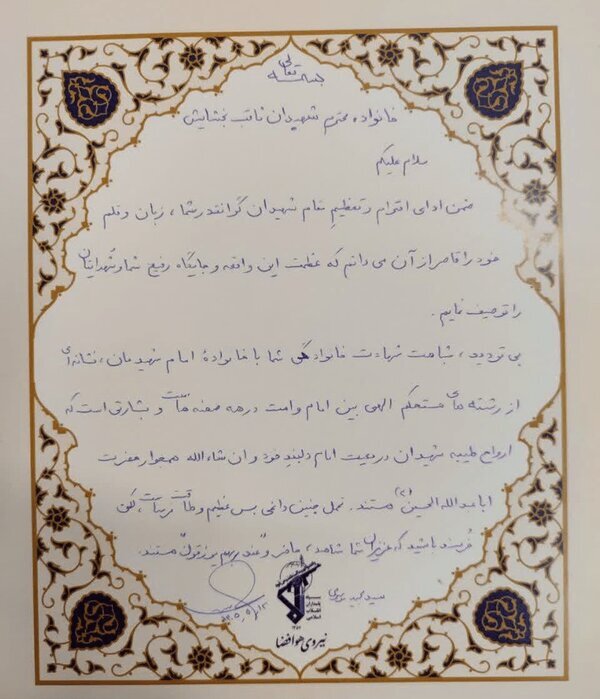 بسمه تعالی
خانواده محترم شهیدان نائب بخشایش
سلام علیکم
ضمن ادای احترام و تعظیم مقام شهیدان گرانقدر شما، زبان و قلم
خود را قاصر از آن می دانم که عظمت این واقعه و جایگاه رفیع شما و شهدایتان
را توصیف نمایم.
بی تردید، شباهت شهادت خانوادگی شما با خانوادهٔ امام شهیدمان، نشانه ای
از رشته های مستحکم الهی بین امام و امت در همه صحنه هاست و بشارتی است که
ارواح طیبه شهیدان در معیت امام دلبند خود و ان شاء الله همجوار حضرت
اباعبدالله الحسین هستند. تحمل چنین داغی بس عظیم و طاقت
خرسند باشید که عزیزان شما شاهد، حاضر و "عند ربهم یرزقون" هستند.
سید مجید موسوی
سپاه
پاسداران
انقلاب
اسلامی
نیروی هوافضا